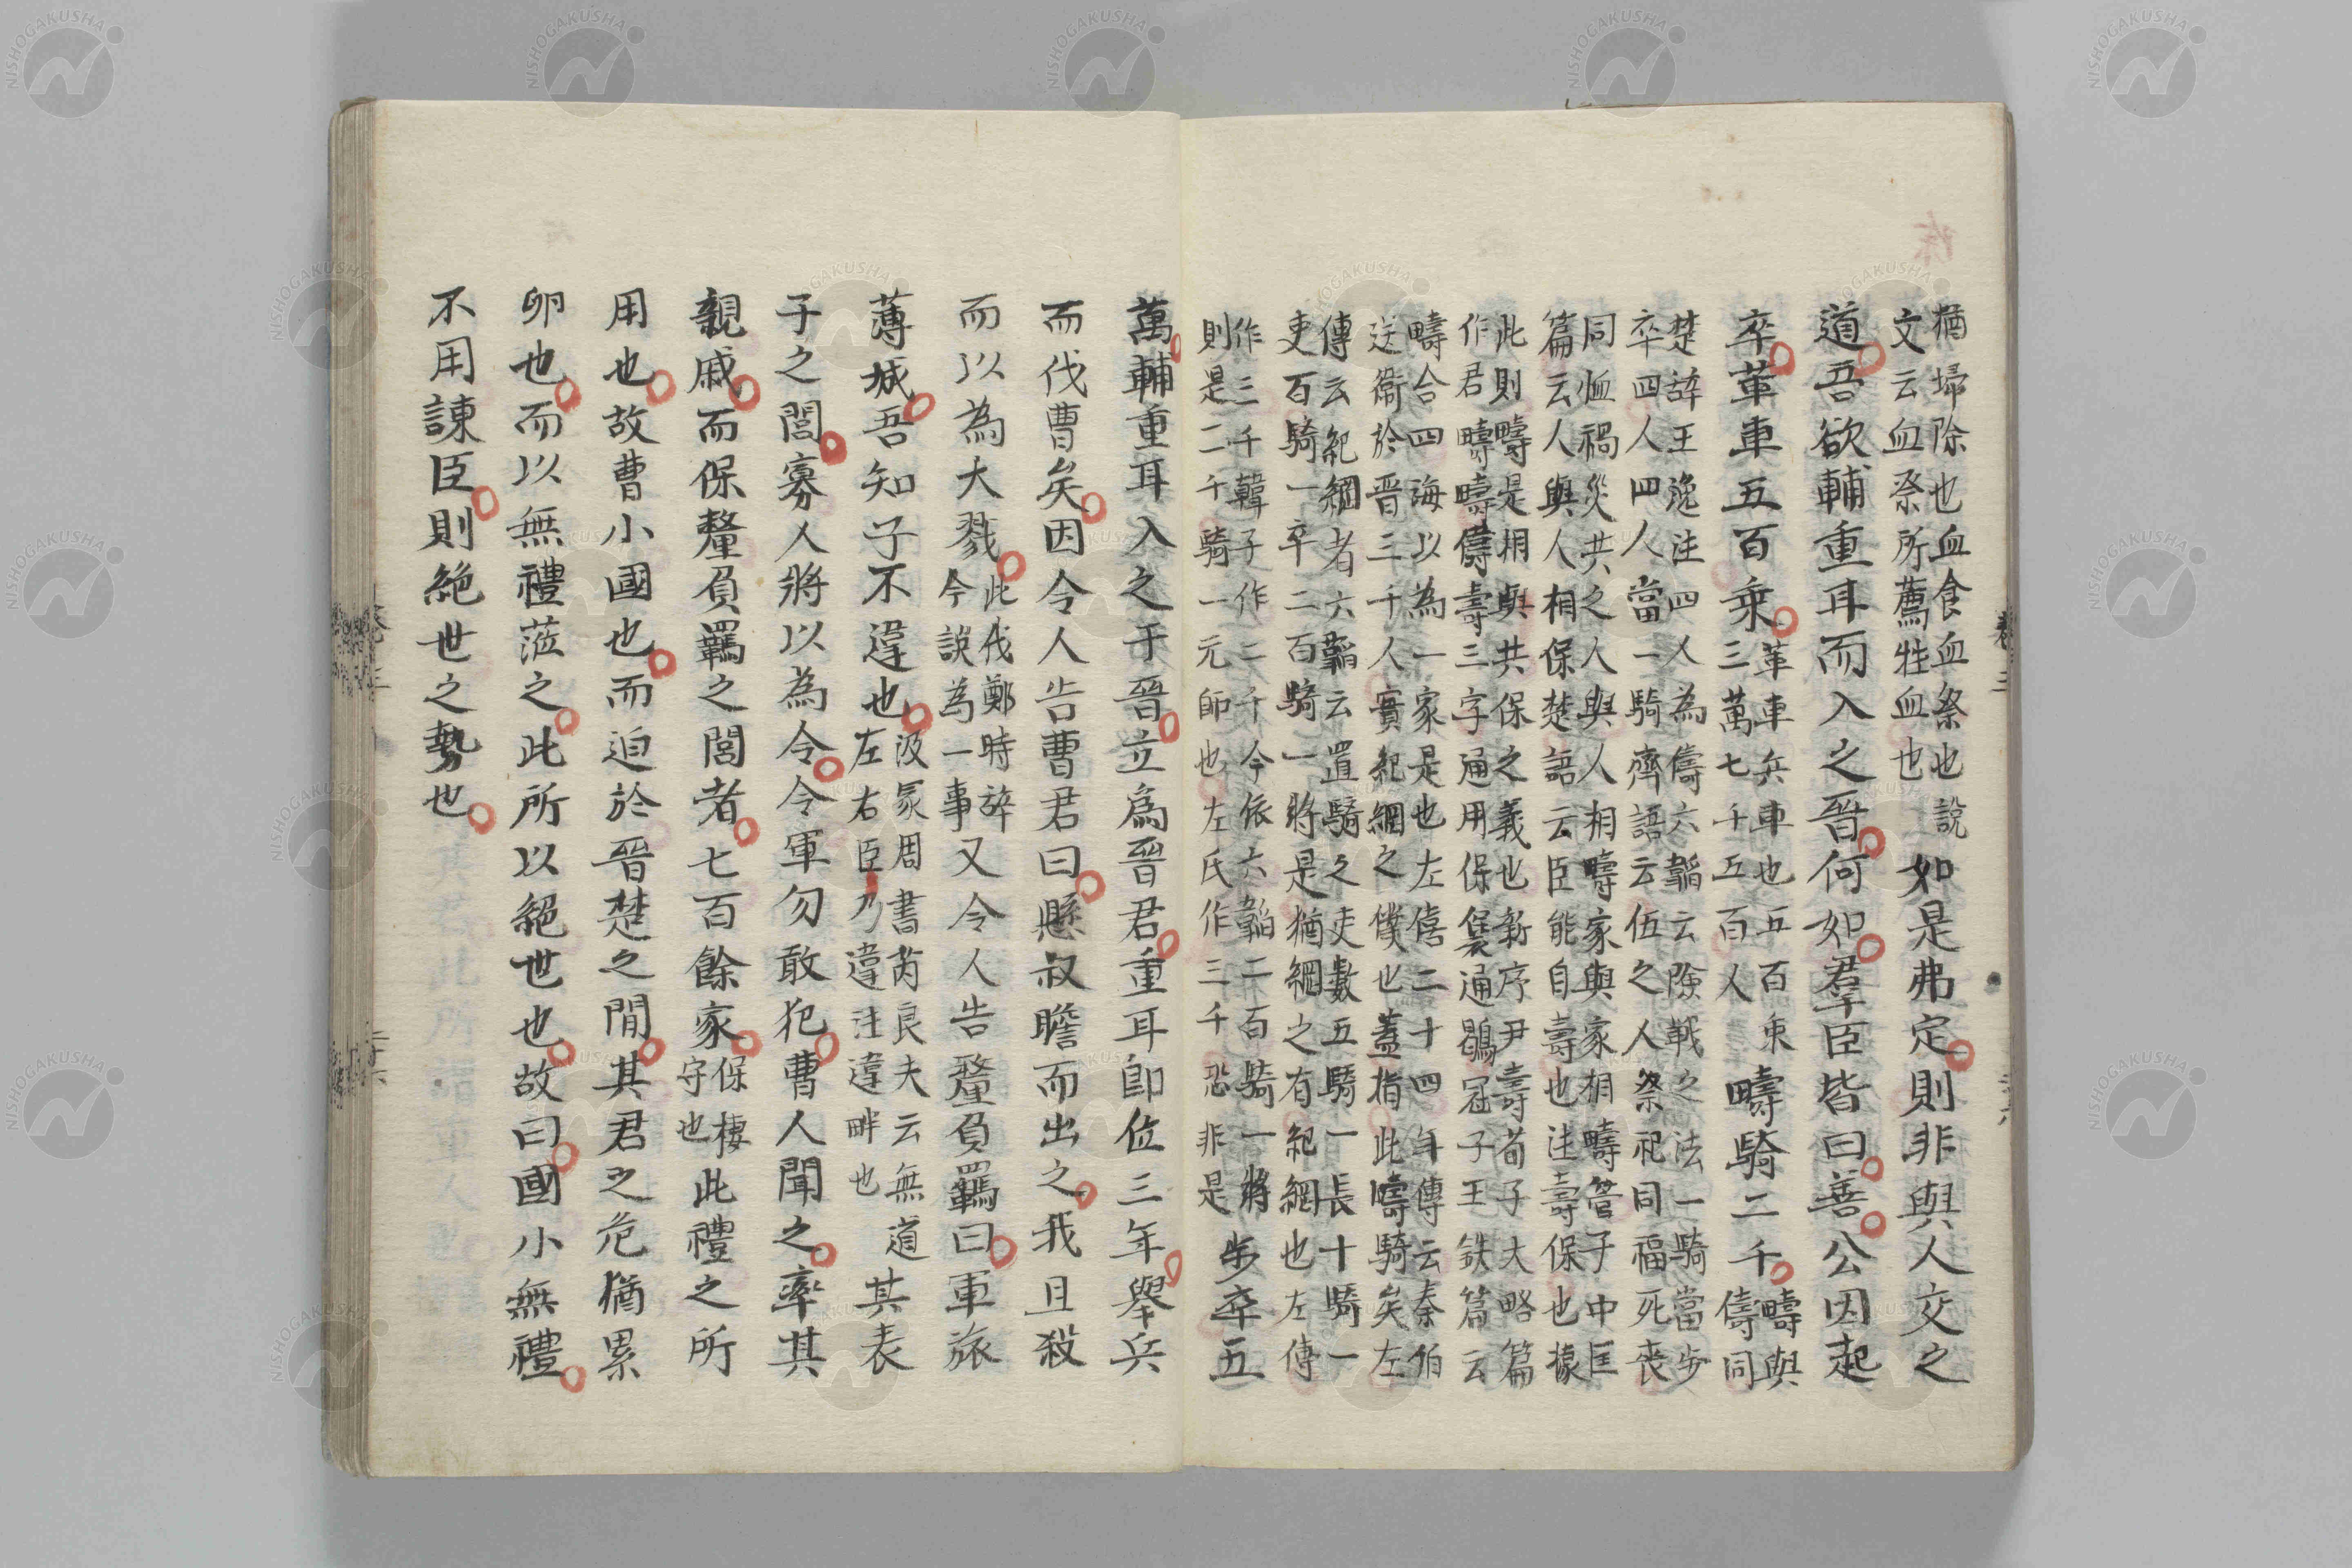 猶埽除也血食血祭也說
文云血祭所薦牲血也
如是弗定則非與人交之
道吾欲輔重耳而入之晉何如羣臣皆曰善公因起
卒革車五百乘
革車兵車也五百乘
三萬七千五百人
疇騎二千
疇與
儔同
楚辭王逸注四人為儔六韜云險戰之法一騎當步
卒四人四人當一騎齊語云伍之人祭祀同福死喪
同恤禍災共之人與人相疇家與家相疇管子中匡
篇云人與人相保楚語云臣能自壽也注壽保也據
此則疇是相與共保之義也新序尹壽荀子大略篇
作君疇疇儔壽三字通用保葆通鶡冠子王鈇篇云
疇合四海以為一家是也左僖二十四年傳云秦伯
送衞於晉三千人實紀綱之僕也蓋指此疇騎矣左
傳云紀綱者六韜云置騎之吏數五騎一長十騎一
吏百騎一卒二百騎一將是猶綱之有紀綱也左傳
作三千韓子作二千今依六韜二百騎一將
則是二千騎一元帥也左氏作三千恐非是
步卒五
萬輔重耳入之于晉立為晉君重耳即位三年舉兵
而伐曹矣因令人告曹君曰懸叔瞻而出之我且殺
而以為大戮
此伐鄭時辭
今誤為一事
又令人告釐負羈曰軍旅
薄城吾知子不違也
汲冢周書芮良夫云無道
左右臣乃違注違畔也
其表
子之閭寡人將以為令令軍勿敢犯曹人聞之率其
親戚而保釐負羈之閭者七百餘家
保棲
守也
此禮之所
用也故曹小國也而迫於晉楚之間其君之危猶累
卵也而以無禮蒞之此所以絕世也故曰國小無禮
不用諫臣則絕世之勢也